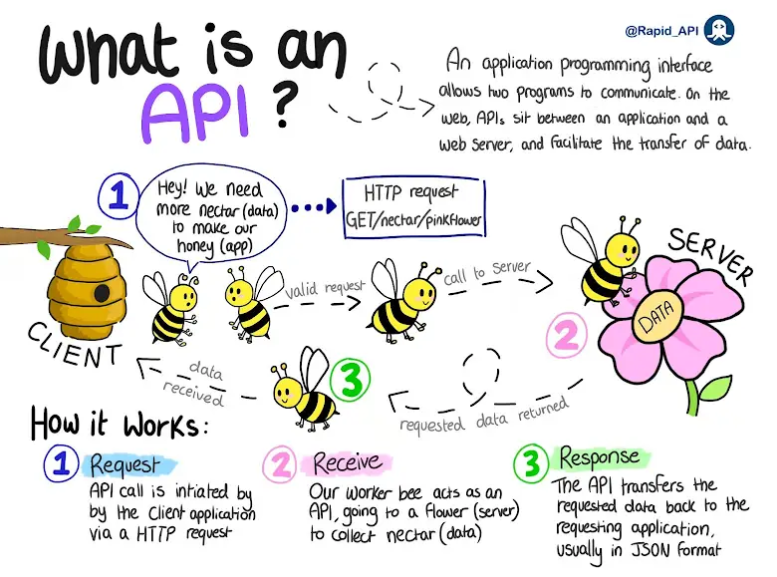 What is an
API?
@Rapid_API
An application programming interface
allows two programs to communicate. On the
web, APIs sit between an application and a
web server, and facilitate the transfer of data.
1
Hey! We need
more nectar (data)
to make our
honey (app)
HTTP request
GET/nectar/pinkflower
CLIENT
valid request
call to server
SERVER
DATA
2
requested data returned
3
data
received
How it works:
1 Request
API call is intiated by
by the client application
via a HTTP request
2 Receive
Our worker bee acts as an
API, going to a flower (server)
to collect nectar (data)
3 Response
The API transfers the
requested data back to the
requesting application,
usually in JSON format